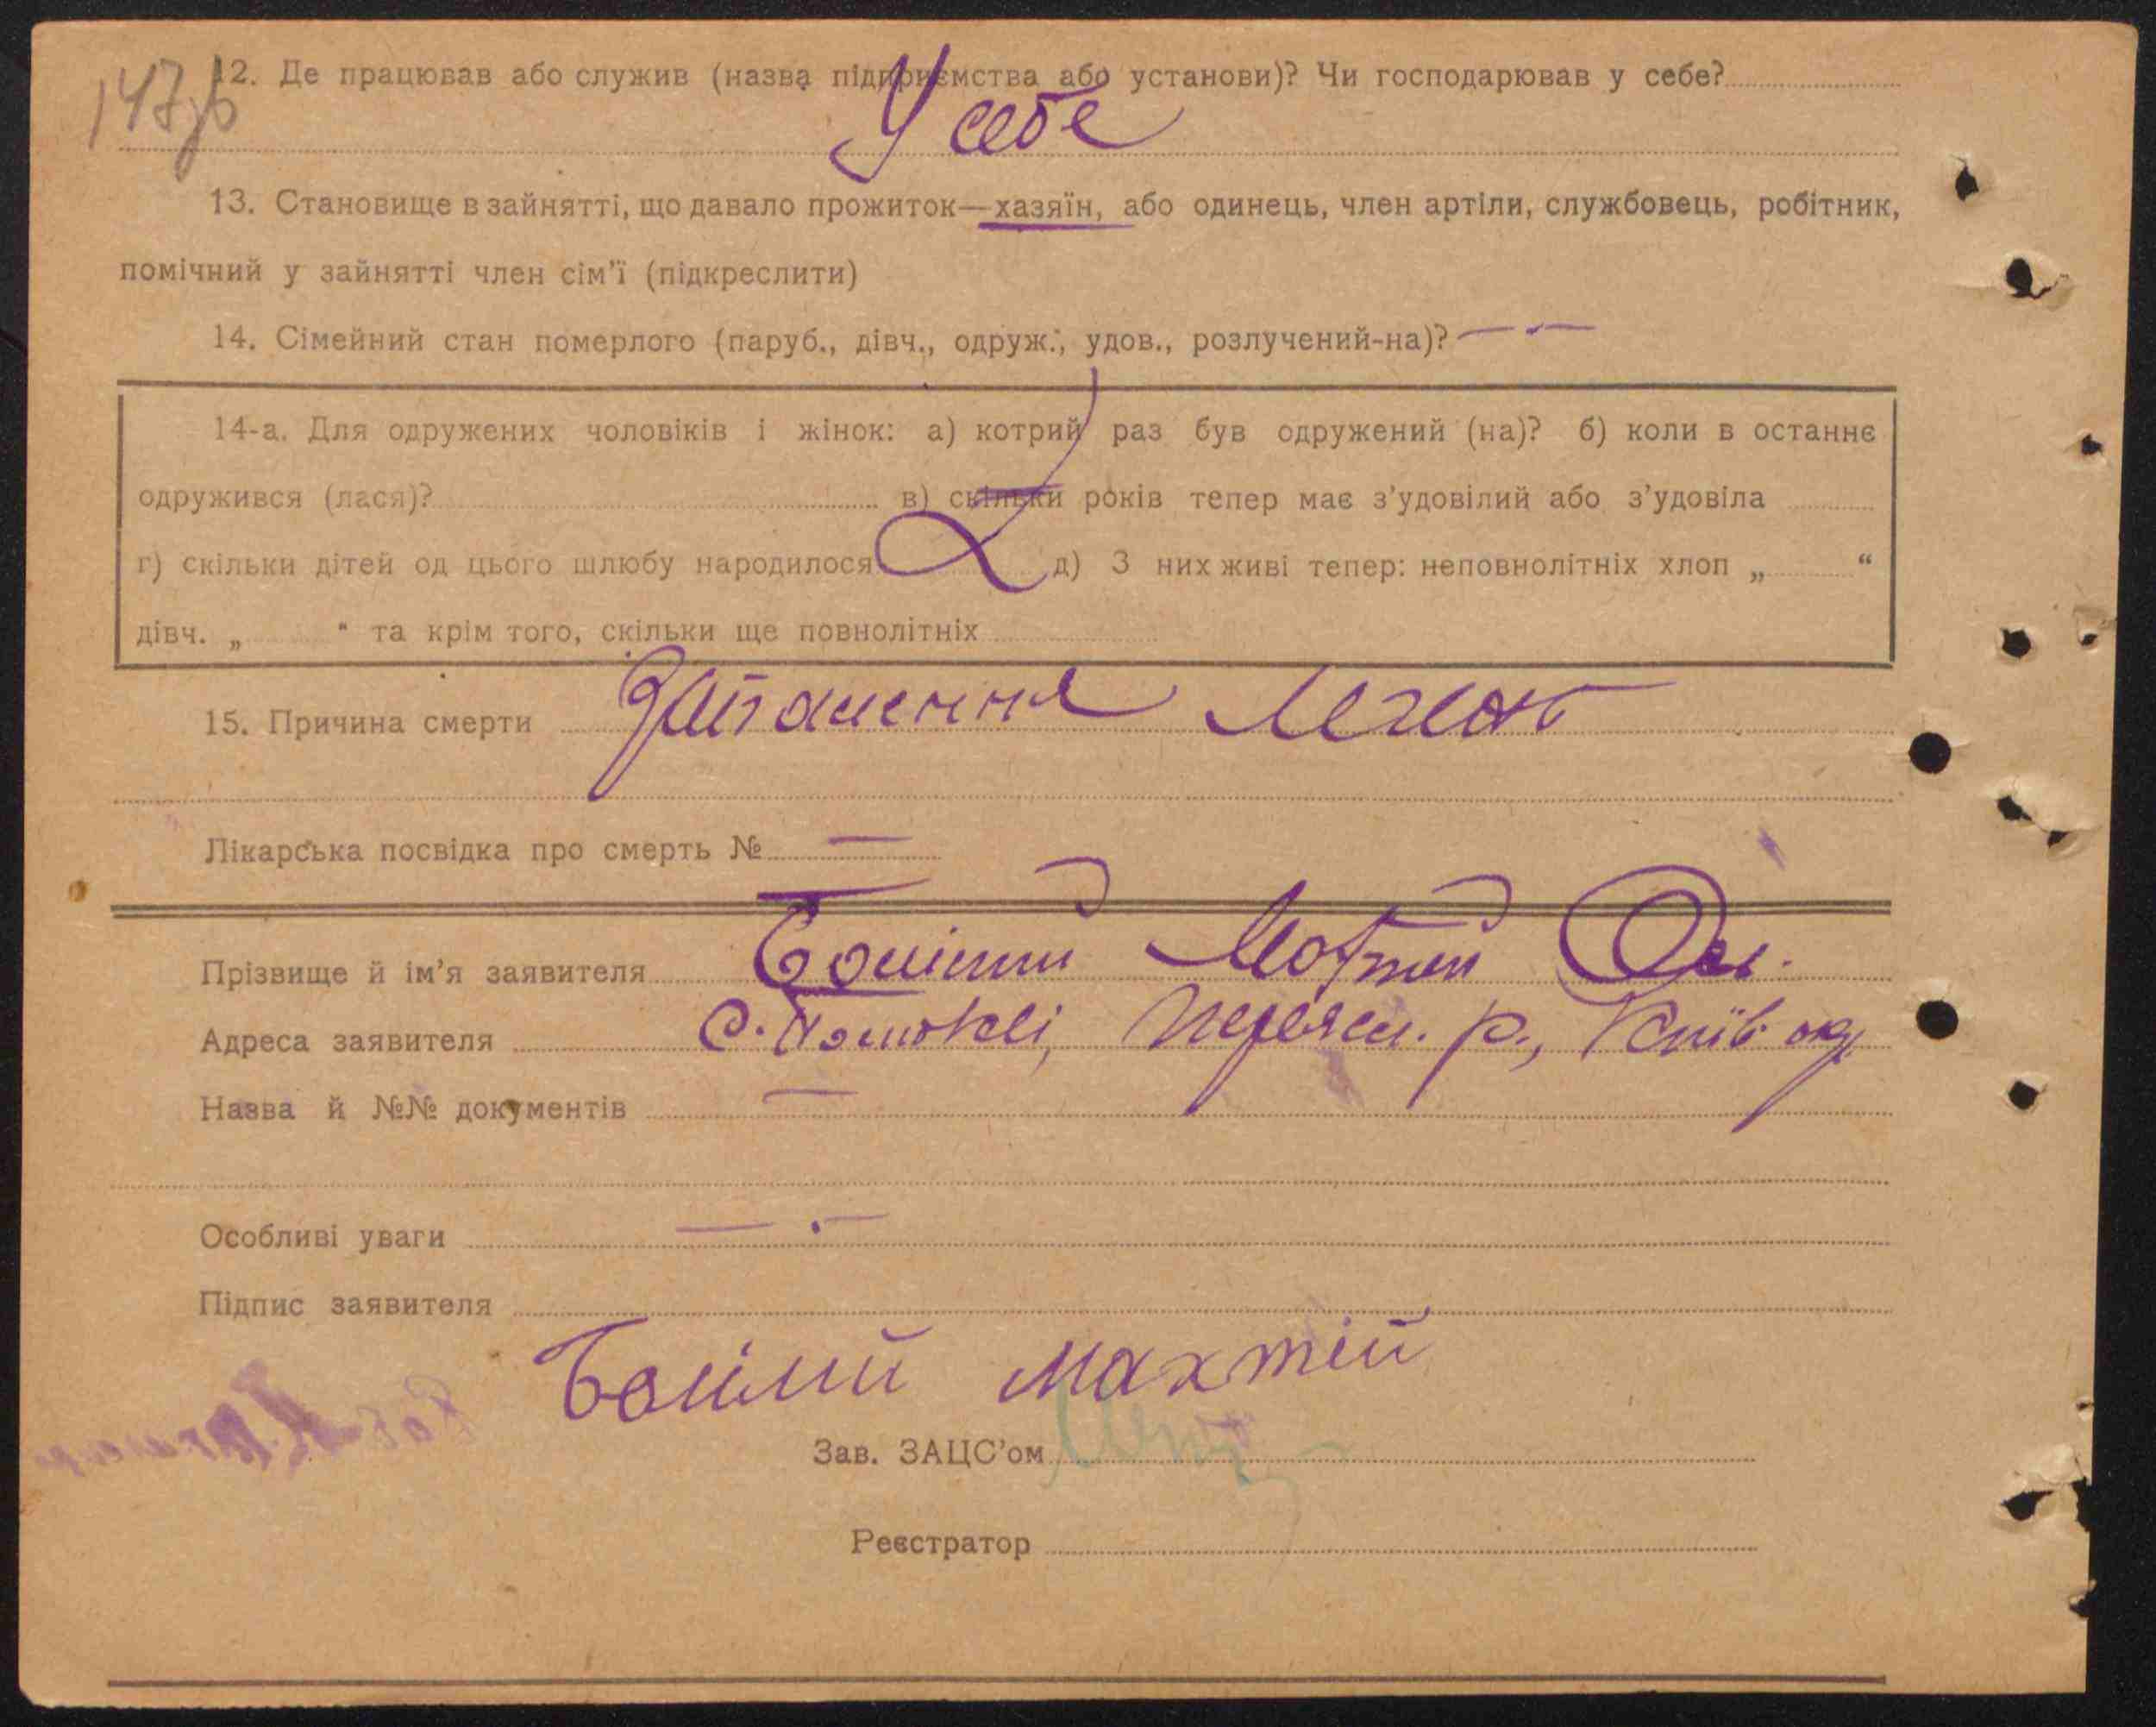 147зв
12. Де працював або служив (назва підприємства або установи)? Чи господарював у себе?
У себе
13. Становище в зайнятті, що давало прожиток—хазяїн, або одинець, член артіли, службовець, робітник,
помічний у зайнятті член сім'ї (підкреслити)
14. Сімейний стан померлого (паруб., дівч., одруж., удов., розлучений-на)? — —
14-а. Для одружених чоловіків і жінок: а) котрий раз був одружений (на)? б) коли в останнє
одружився (лася)? в) скільки років тепер має з'удовілий або з'удовіла
г) скільки дітей од цього шлюбу народилося д) З них живі тепер: неповнолітніх хлоп „ “
дівч. „ “ та крім того, скільки ще повнолітніх
15. Причина смерти Запалення легенів
Лікарська посвідка про смерть № —
Прізвище й ім'я заявителя Мотвій
Адреса заявителя с. Помоклі, Переясл. р., Київ. окр.
Назва й №№ документів —
Особливі уваги — . —
Підпис заявителя
Махтій
Зав. ЗАЦС'ом
Реєстратор